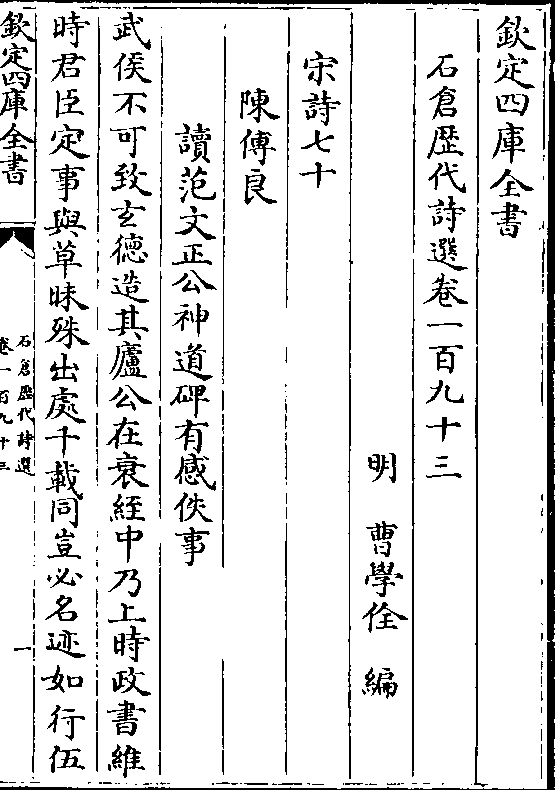 欽定四庫全書
石倉歴代詩選卷一百九十三
明　曹學佺　編
宋詩七十
陳傅良
讀范文正公神道碑有感佚事
武侯不可致玄德造其廬公在衰絰中乃上時政書維
時君臣定事與草昧殊出處千載同豈必名迹如行伍
欽定四庫全書
石倉歴代詩選
卷一百九十三
一